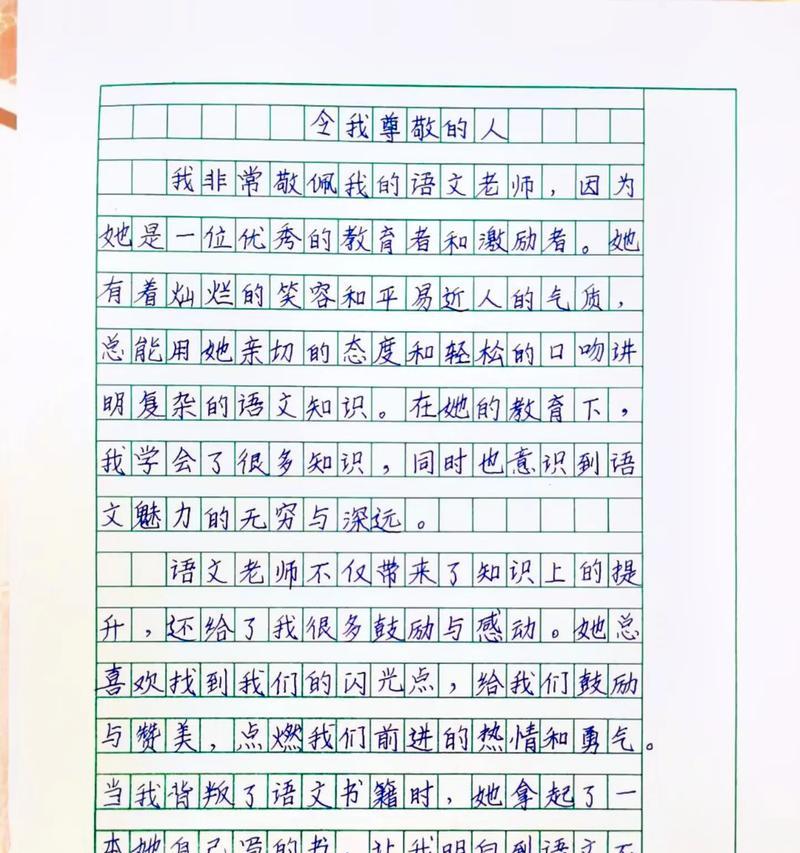 令我尊敬的人
我非常敬佩我的语文老师，因为
她是一位优秀的教育者和激励者。她
有着灿烂的笑容和平易近人的气质，
总能用她亲切的态度和轻松的口吻讲
明复杂的语文知识。在她的教育下，
我学会了很多知识，同时也意识到语
文魅力的无穷与深远。
语文老师不仅带来了知识上的提
升，还给了我很多鼓励与感动。她总
喜欢找到我们的闪光点，给我们鼓励
与赞美，点燃我们前进的热情和勇气。
当我背叛了语文书籍时，她拿起了一
本她自己写的书，让我明白到语文不